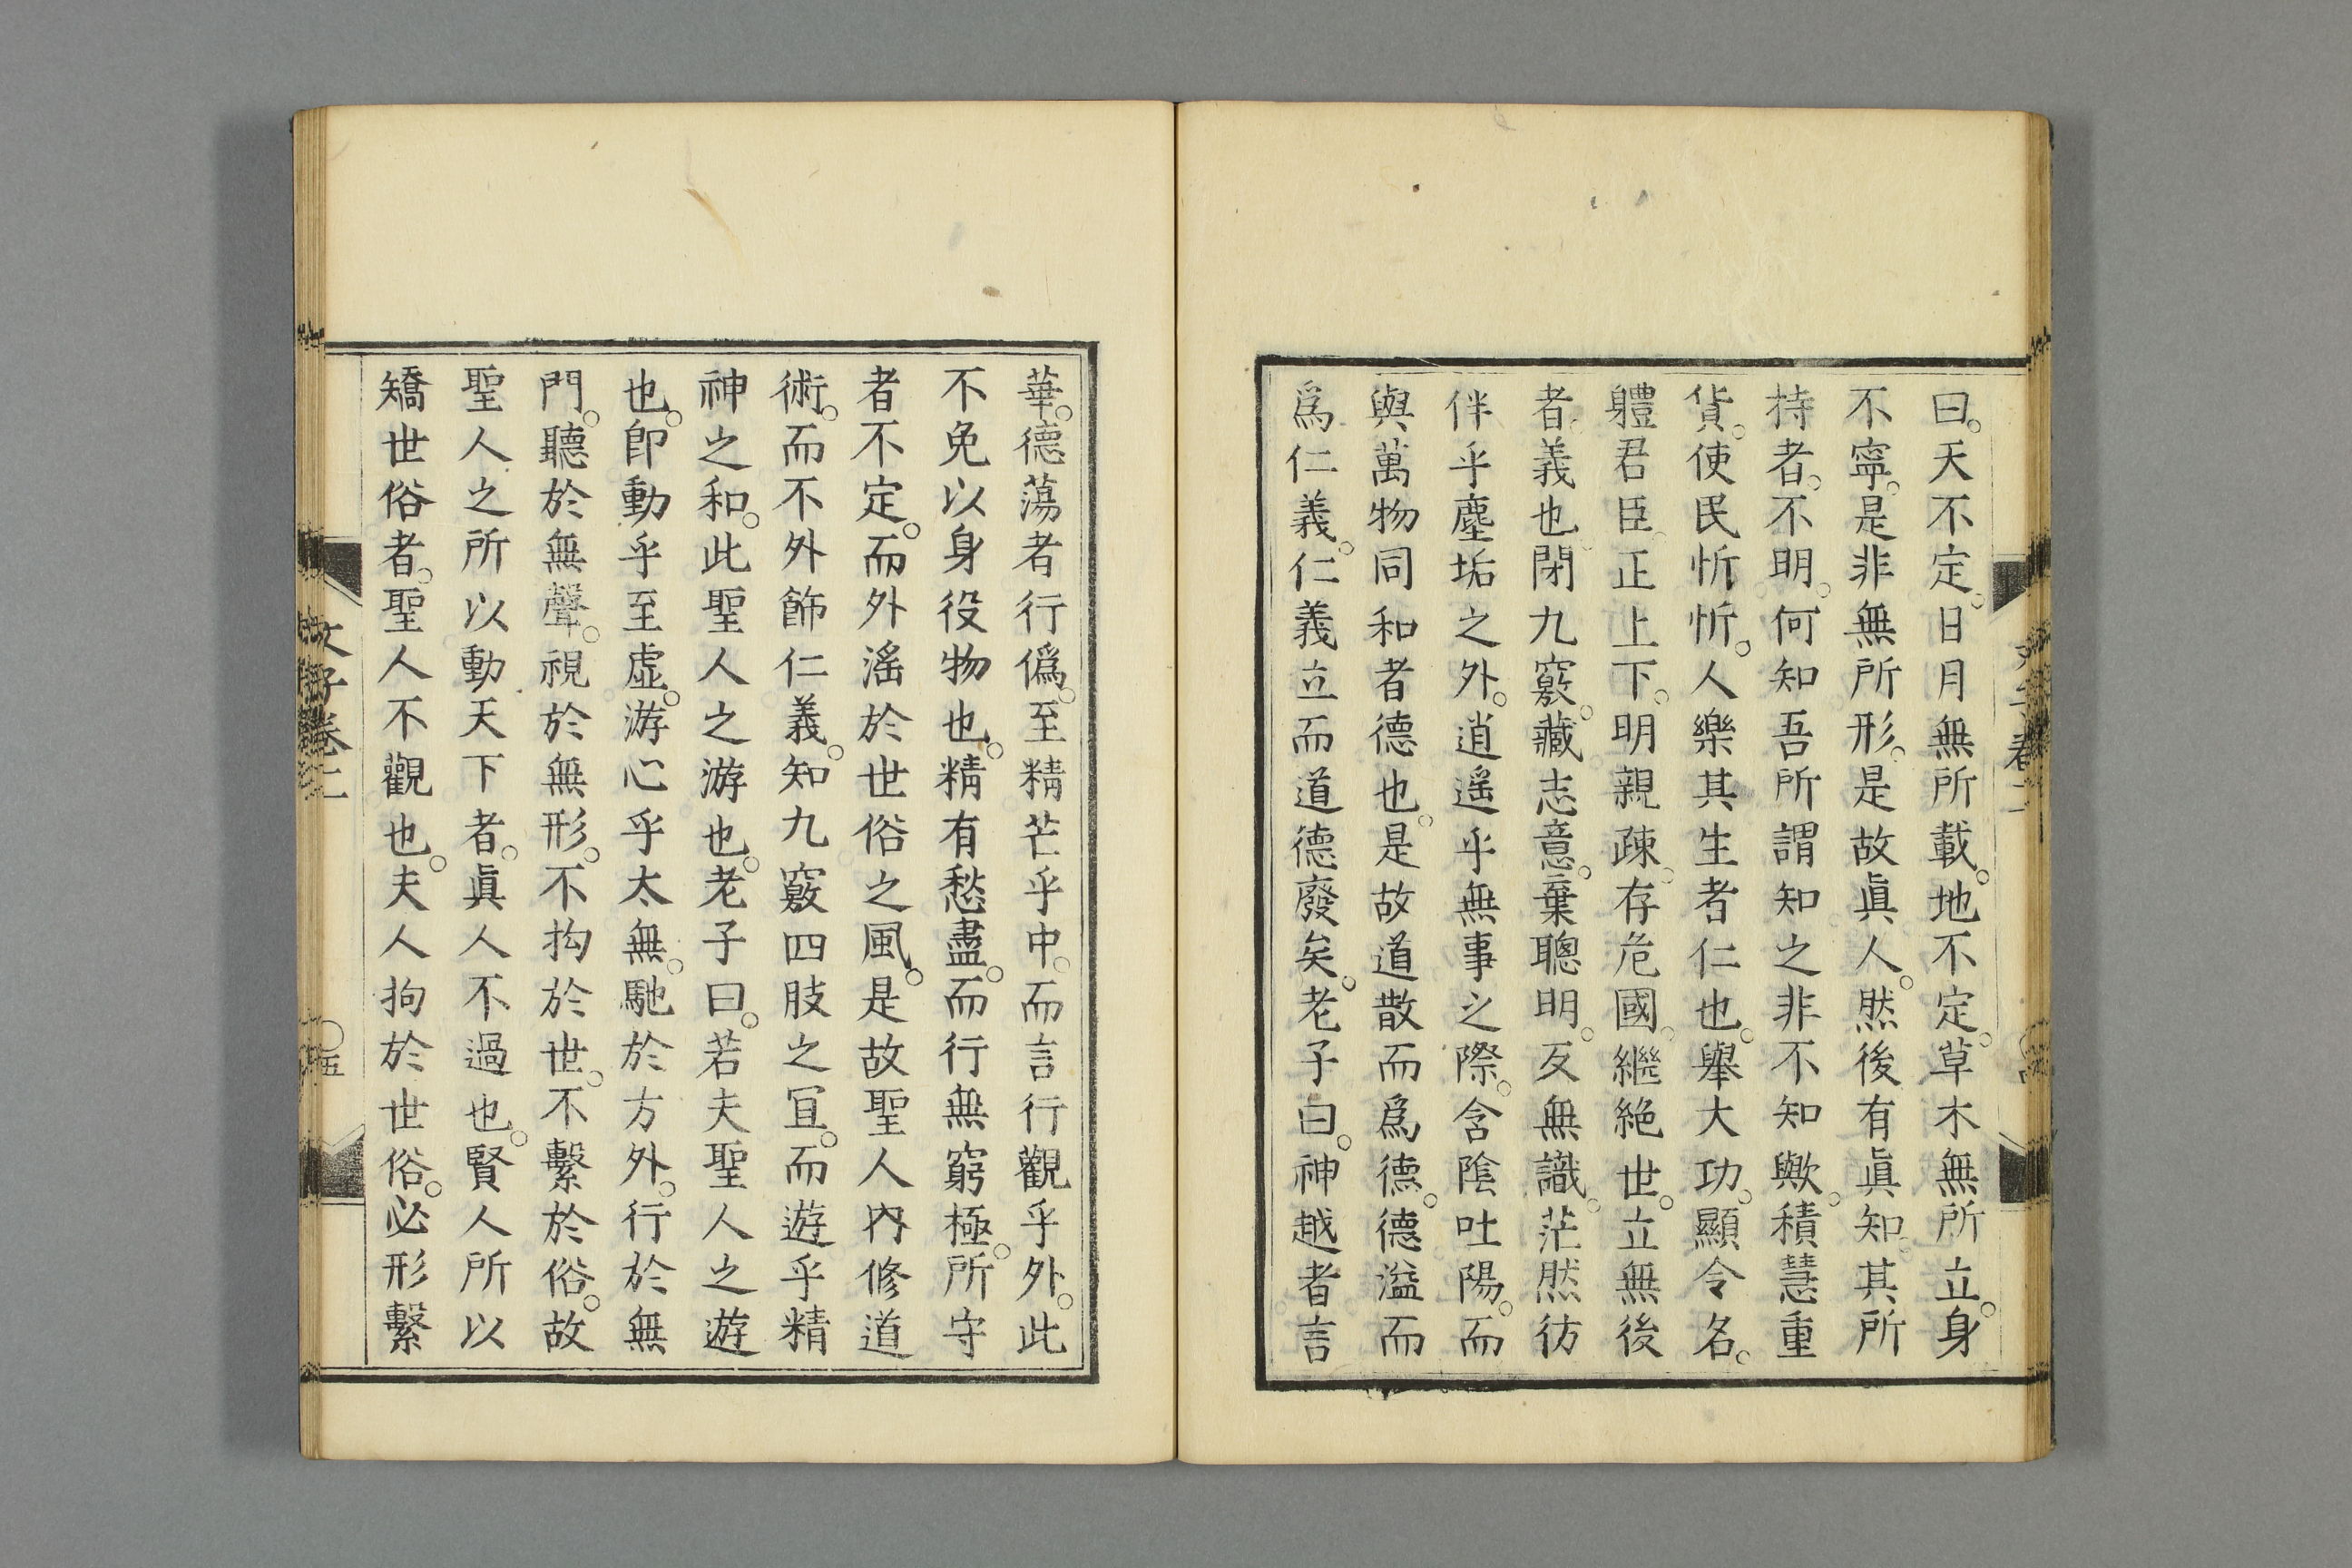 曰。天不定。日月無所載。地不定。草木無所立。身
不寧。是非無所形。是故眞人。然後有眞知。其所
持者。不明。何知吾所謂知之非不知歟。積慧重
貨。使民忻忻。人樂其生者仁也。舉大功。顯令名。
軆君臣。正上下。明親疎。存危國。繼絶世。立無後
者。義也。閉九竅。藏志意。棄聰明。反無識。茫然彷
佯乎塵垢之外。逍遥乎無事之際。含陰吐陽。而
與萬物同和者德也。是故道散而爲德。德溢而
爲仁義。仁義立而道德廢矣。老子曰。神越者言
華。德蕩者行僞。至精芒乎中。而言行觀乎外。此
不免以身役物也。精有愁盡。而行無窮極。所守
者不定。而外滛於世俗之風。是故聖人内修道
術。而不外飾仁義。知九竅四肢之冝。而遊乎精
神之和。此聖人之游也。老子曰。若夫聖人之遊
也。即動乎至虚。游心乎太無。馳於方外。行於無
門。聽於無聲。視於無形。不拘於世。不繫於俗。故
聖人之所以動天下者。眞人不過也。賢人所以
矯世俗者。聖人不觀也。夫人拘於世俗。必形繫
文子卷二
五